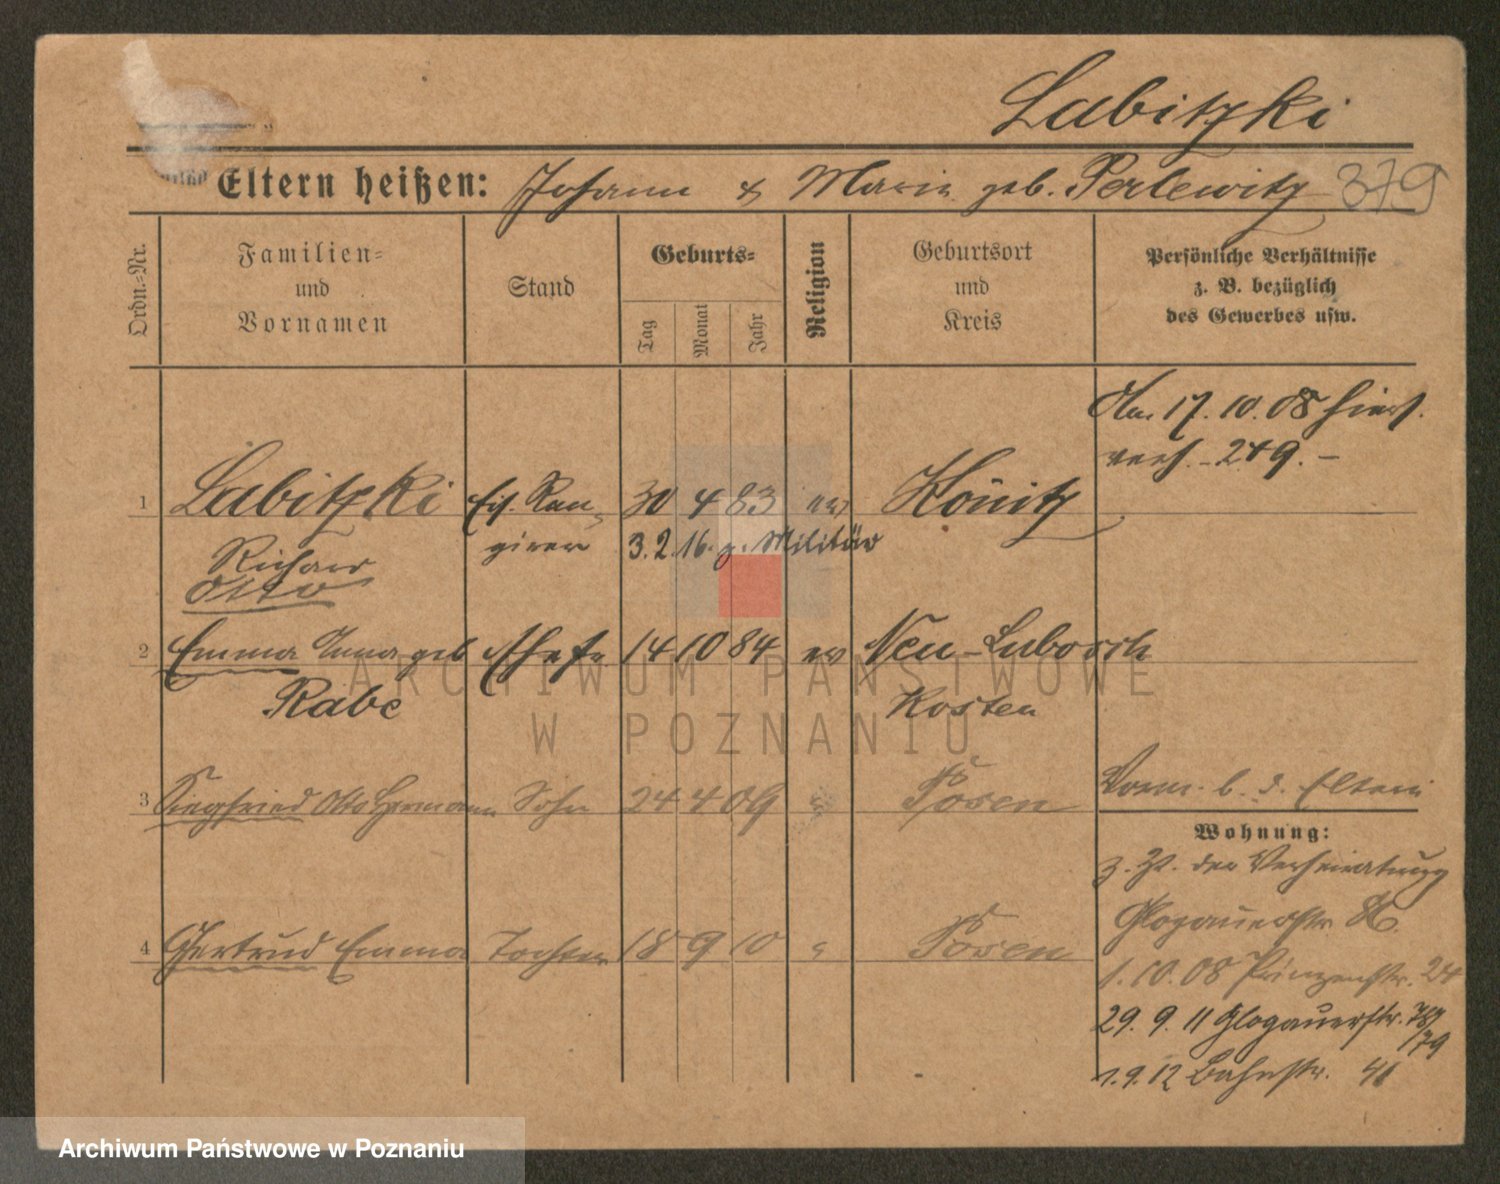 Labitzki
Eltern heißen: Johann & Marie geb. Perlewitz 379
Ordn.-Nr.
Familien-
und
Vornamen
Stand
Geburts-
Tag
Monat
Jahr
Religion
Geburtsort
und
Kreis
Persönliche Verhältnisse
z. B. bezüglich
des Gewerbes usw.
Am 17. 10. 08 hier
verh. - 249. -
1 Labitzki Eis. Ran- 30 4 83 ev Könitz
Richard gierer 3. 2. 16. z. Militär
Otto
2 Emma Anna geb Ehefr 14 10 84 ev Neu-Luborch
Rabe Kosten
3 Siegfried Otto Hermann Sohn 24 4 09 Posen
Vorm. b. d. Eltern
Wohnung:
z. Zt. der Verheiratung
Glogauerstr.
4 Gertrud Emma Tochter 18 9 10 Posen
1. 10. 08 Prinzenstr. 24
29. 9. 11 Glogauerstr. 78/79
1. 9. 12 Bahnstr. 41
ARCHIWUM PAŃSTWOWE
W POZNANIU
Archiwum Państwowe w Poznaniu